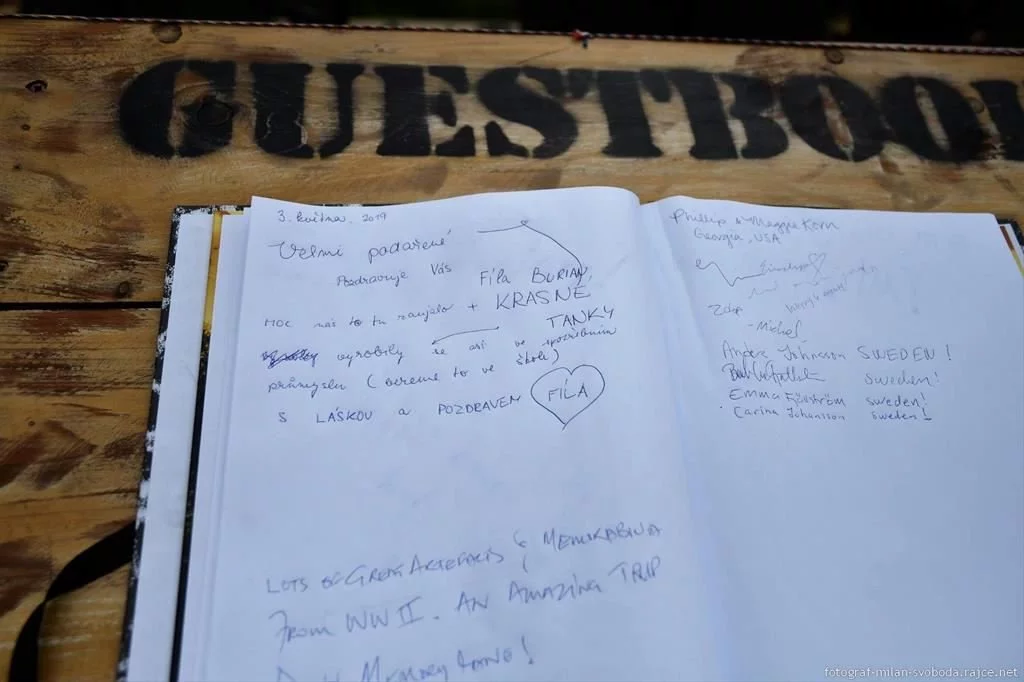 GUESTBOO
3. května. 2019
Velmi podařené
Pozdravuje Vás Fíla BURIAN,
MOC nás to tu zaujalo + KRASNE
TANKY
vyrobily se asi ve spotřebním
průmyslu (bereme to ve škole)
S LÁSKOU a POZDRAVEM FÍLA
LOTS OF GREAT ARTEFACTS & MEMORABILIA
FROM WW II. AN AMAZING TRIP
MEMORY LANE!
Phillip & Maggie Korn
Georgia, USA
-Michal
Anders Johnsson SWEDEN!
sweden!
Emma sweden!
Carina Johansson sweden!
fotograf-milan-svoboda.rajce.net